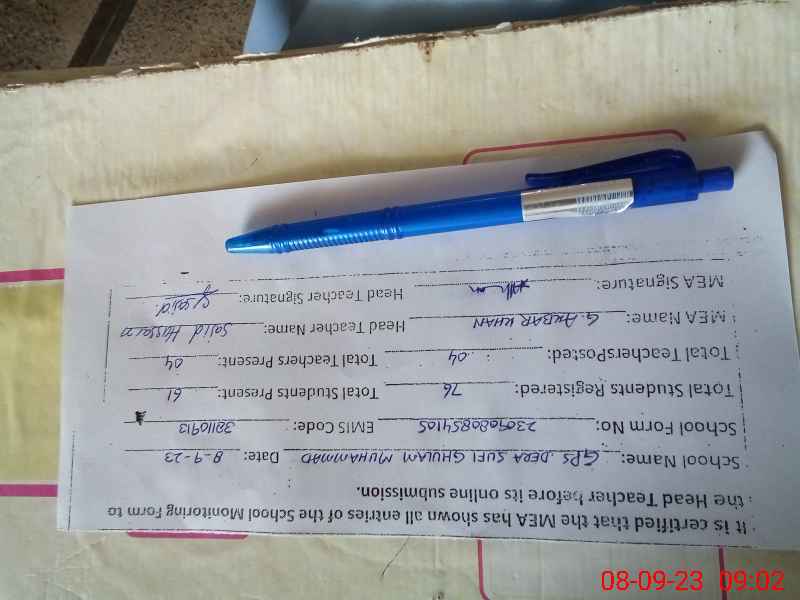 It is certified that the MEA has shown all entries of the School Monitoring Form to
the Head Teacher before its online submission.
School Name: GPS. DERA SUFI GHULAM MUHAMMAD Date: 8-9-23
School Form No: 2309080854105 EMIS Code: 32110913
Total Students Registered: 76 Total Students Present: 61
Total TeachersPosted: 04 Total Teachers Present: 04
MEA Name: G. AKBAR KHAN Head Teacher Name: Sajid Hussain
MEA Signature: Head Teacher Signature: Sajid
08-09-23 09:02